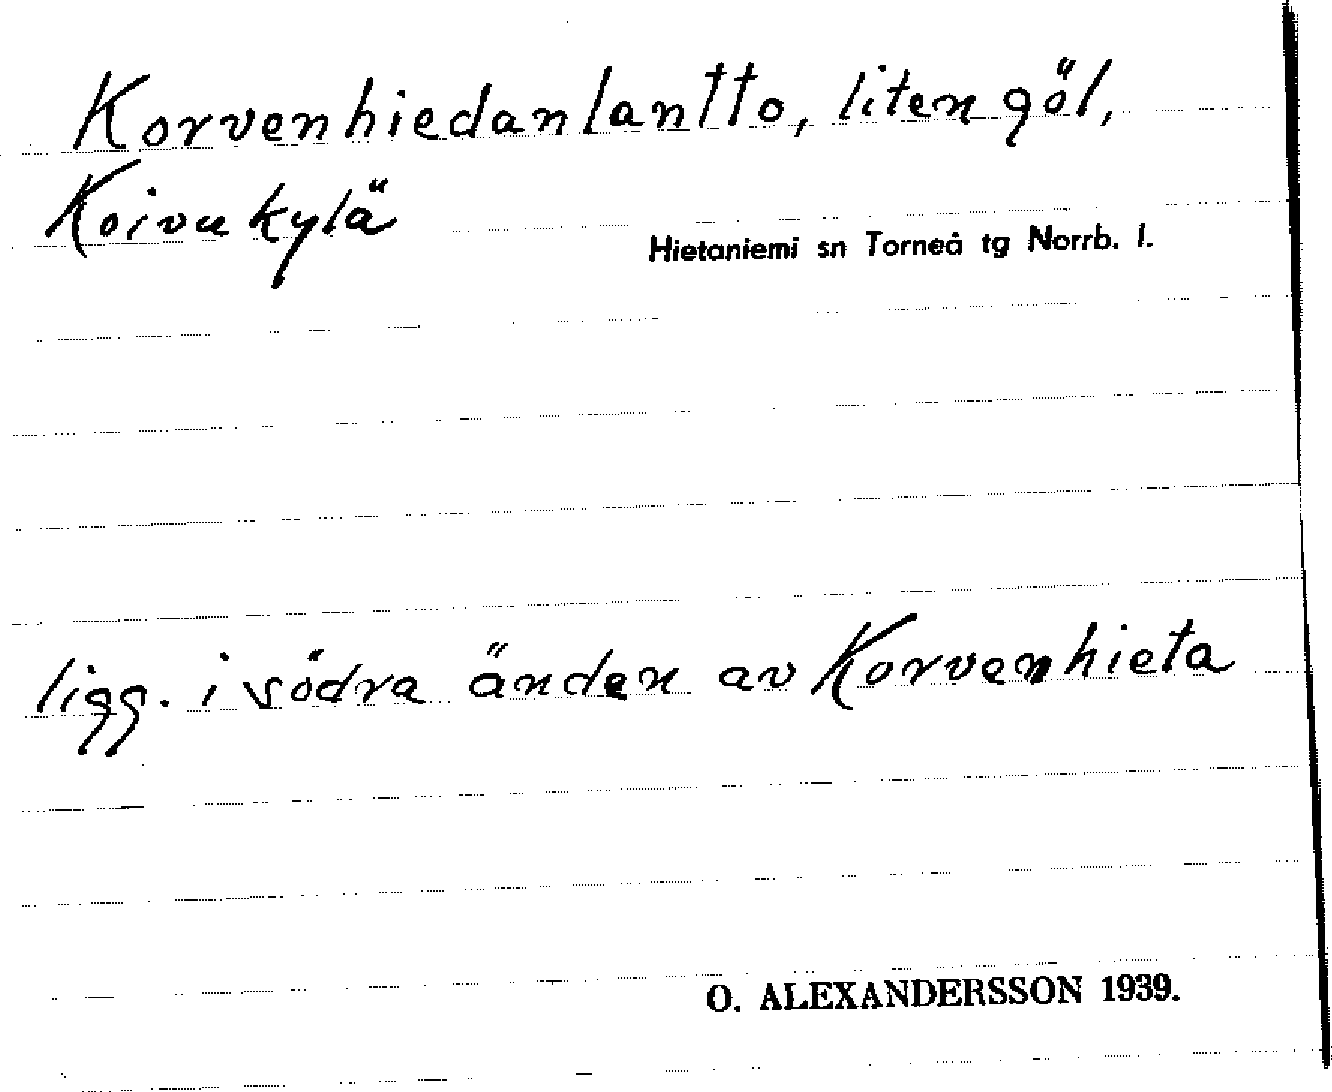 Korvenhiedanlantto, liten göl,
Koivukylä
Hietaniemi sn Torneå tg Norrb. l.
ligg. i södra änden av Korvenhieta
O. ALEXANDERSSON 1939.